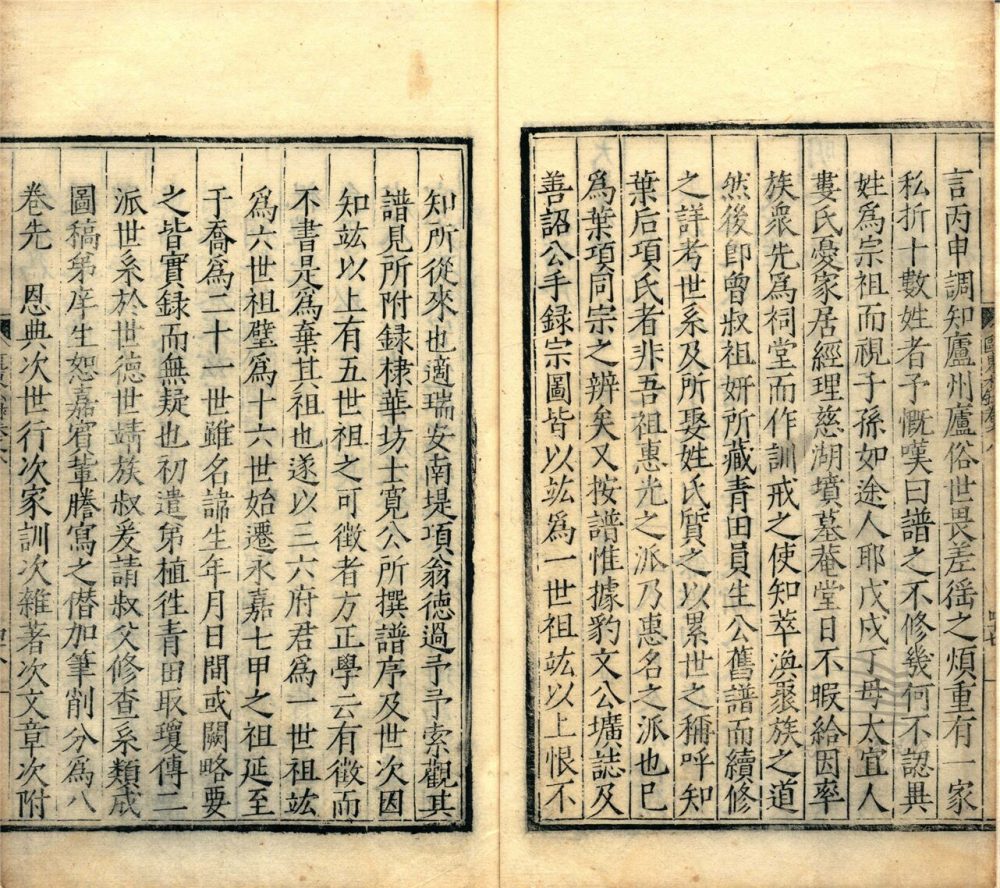 言丙申調知廬州廬俗世畏差徭之煩重有一家
私折十數姓者予慨嘆曰譜之不修幾何不認異
姓爲宗祖而視子孫如途人耶戊戌丁母太宜人
婁氏憂家居經理慈湖墳墓菴堂日不暇給因率
族衆先爲祠堂而作訓戒之使知萃渙聚族之道
然後卽曾叔祖妍所藏青田員生公舊譜而續修
之詳考世系及所娶姓氏質之以累世之稱呼知
葉后項氏者非吾祖惠光之派乃惠名之派也已
爲葉項同宗之辨矣又按譜惟據豹文公壙誌及
善詔公手録宗圖皆以竑爲一世祖竑以上恨不
知所從來也適瑞安南堤項翁德過予予索觀其
譜見所附録棣華坊士寬公所撰譜序及世次因
知竑以上有五世祖之可徵者方正學云有徵而
不書是爲棄其祖也遂以三六府君爲一世祖竑
爲六世祖璧爲十六世始遷永嘉七甲之祖延至
于喬爲二十一世雖名諱生年月日間或闕略要
之皆實録而無疑也初遣弟植徃青田取瓊傳二
派世系於世德世靖族叔爰請叔父修查系類成
圖稿弟庠生恕嘉賓輩謄寫之僭加筆削分爲八
卷先　恩典次世行次家訓次雜著次文章次附